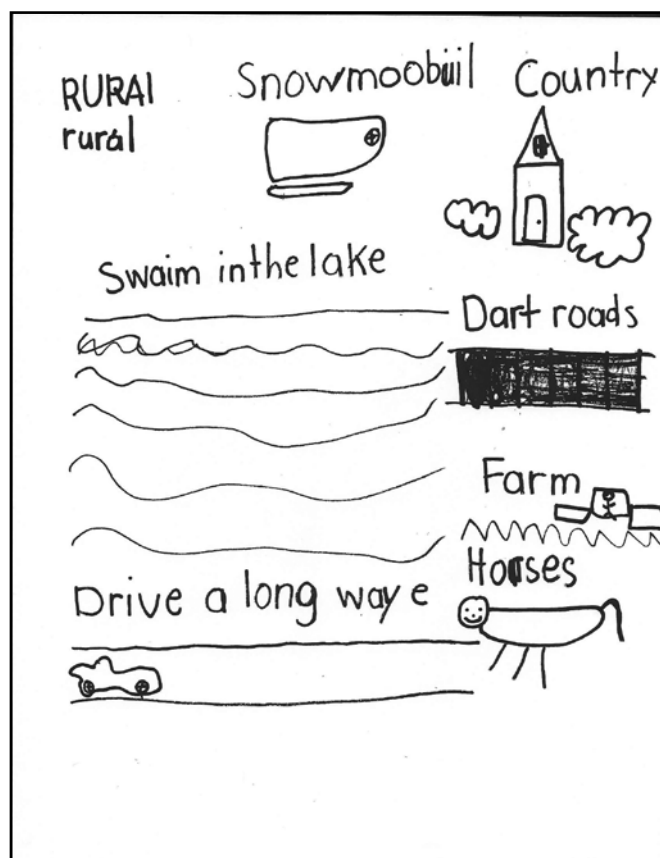 RURAl
rural
Snowmoobiil
Country
Swaim in the lake
Dart roads
Farm
Horses
Drive a long way e